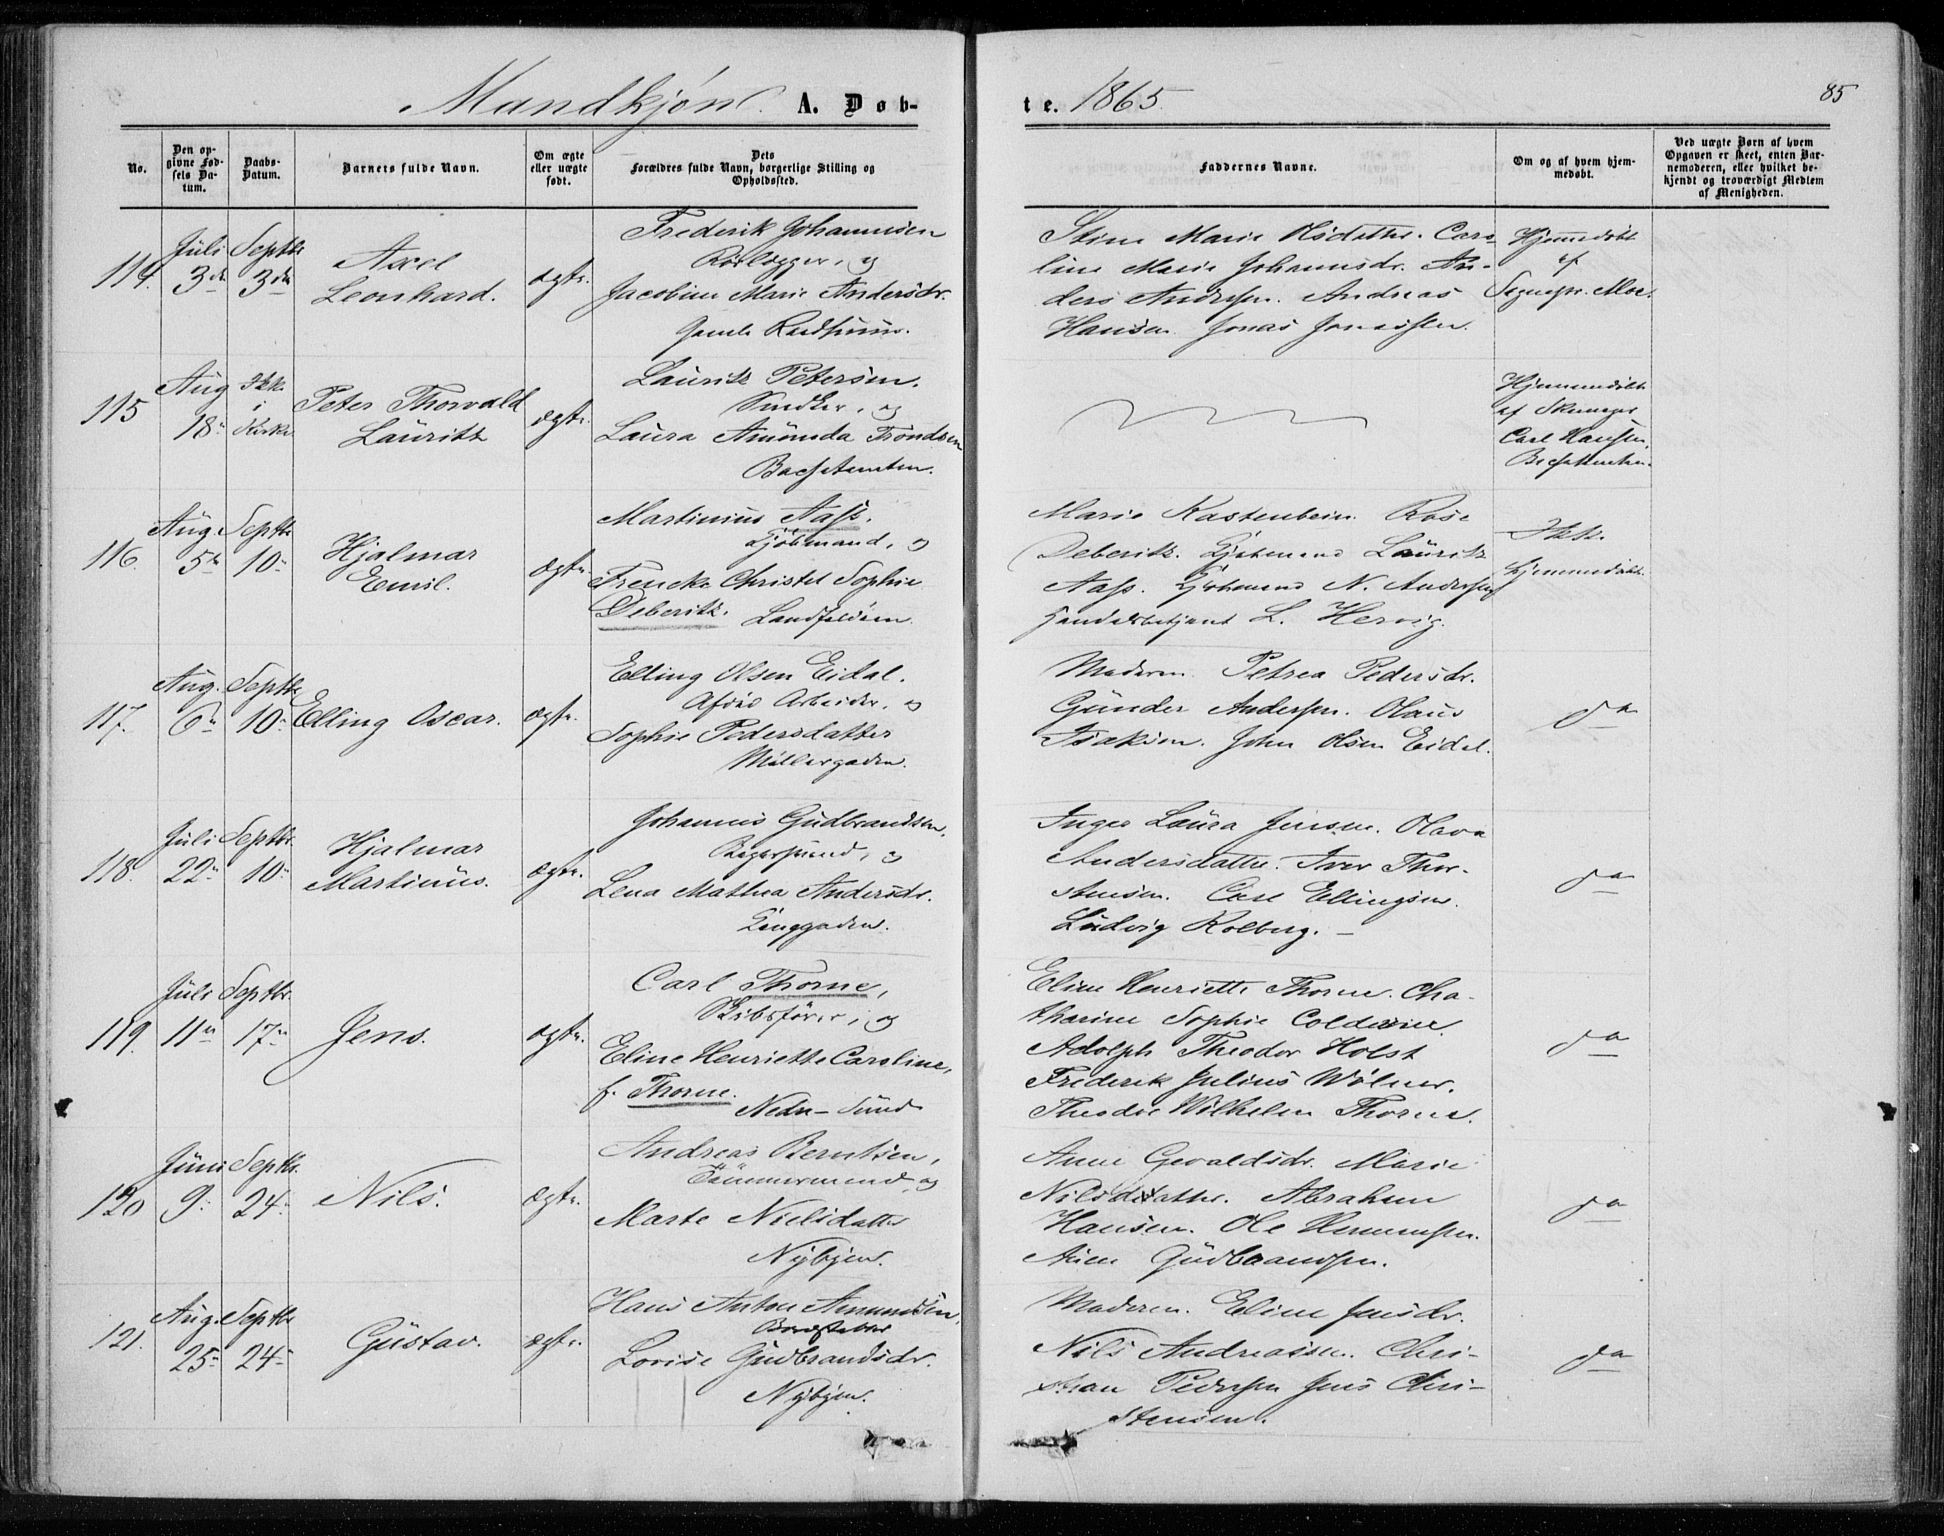 Mandkjøn. A. Døb-
te. 1865.
85
No.
Den op-
givne Fød-
sels Da-
tum.
Daabs-
Datum.
Barnets fulde Navn.
Om ægte
eller uægte
født.
Dets
Forældres fulde Navn, borgerlige Stilling og
Opholdssted.
Faddernes Navne.
Om og af hvem hjem-
medøbt.
Ved uægte Børn af hvem
Opgaven er skeet, enten Bar-
nemoderen, eller hvilket be-
kjendt og troværdigt Medlem
af Menigheden.
114.
Juli
3die
Septbr
3die
Axel
Leonhard.
ægte.
Frederik Johannesen
Rørlægger, og
Jacobine Marie Andersdr.
Gamle
Stine Marie Olsdatter. Caro-
line Marie Johannsdr. An-
ders Andersen. Andreas
Hansen. Jonas Jonassen.
Hjemmedøbt
af
Sognepr. Moe.
115
Aug
18.
Ikke
i
Kirke
Peter Thorvald
Lauritz
ægte.
Lauritz Petersen.
Snedker, og
Laura Amunda Trondsen
Hjemmedøbt
af
Carl Hansen,
116.
Aug.
5te
Septbr
10.
Hjalmar
Emil.
ægte.
Martinius Aass,
Kjøbmand, og
Christel Sophie
Deberitz. Landfaldøen
Marie Kastenbein. Rosa
Deberitz. Kjøbmand Lauritz
Aass. Kjøbmand N. Andersen
Handelsbetjent L. Hervig.
Ikke
hjemmedøbt.
117.
Aug.
6te
Septbr
10.
Elling Oscar.
ægte.
Elling Olsen Eidal.
Arbeider, og
Sophie Pedersdatter
Møllergaden.
Moderen. Petrea Pedersdr.
Gunder Andersen. Olaus
Isaksen. John Olsen Eidal.
do
118.
Juli
22.
Septbr.
10.
Hjalmar
Martinus.
ægte.
Johannes Gudbrandsen,
Bagersvend, og
Lena Mathea Andersdr.
Langgaden.
Inger Laura Jensen. Olava
Andersdatter. Iver Thor-
stensen. Carl Ellingsen.
Ludvig Kolberg. –
do
119.
Juli
11.
Septbr.
17.
Jens.
ægte.
Carl Thorne,
Skibsfører, og
Eline Henriette Caroline,
f. Thorne.
Nedre Sund
Eline Henriette Thorne. Cha-
tharine Sophie
Adolph Theodor Holst
Frederik Julius Wølner.
Theodor Wilhelm Thorne.
do
120
Juni
9.
Septbr.
24.
Nils.
ægte.
Andreas Berntsen,
Tømmermand, og
Marte Nielsdatter
Nybyen.
Anne Gevaldsdr. Marie
Nilsdatter. Abraham
Hansen. Ole
Gudbrandsen.
do
121.
Aug.
25.
Septbr
24.
Gustav.
ægte.
Hans Anton Amundsen,
Lovise Gudbrandsdr.
Nybyen.
Moderen. Eline Jensdr.
Nils Andreassen. Chri-
stian Pedersen Jens Chri-
stensen.
do